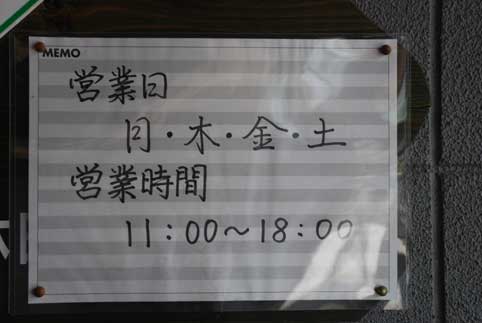 MEMO
営業日
月・木・金・土
営業時間
11:00〜18:00